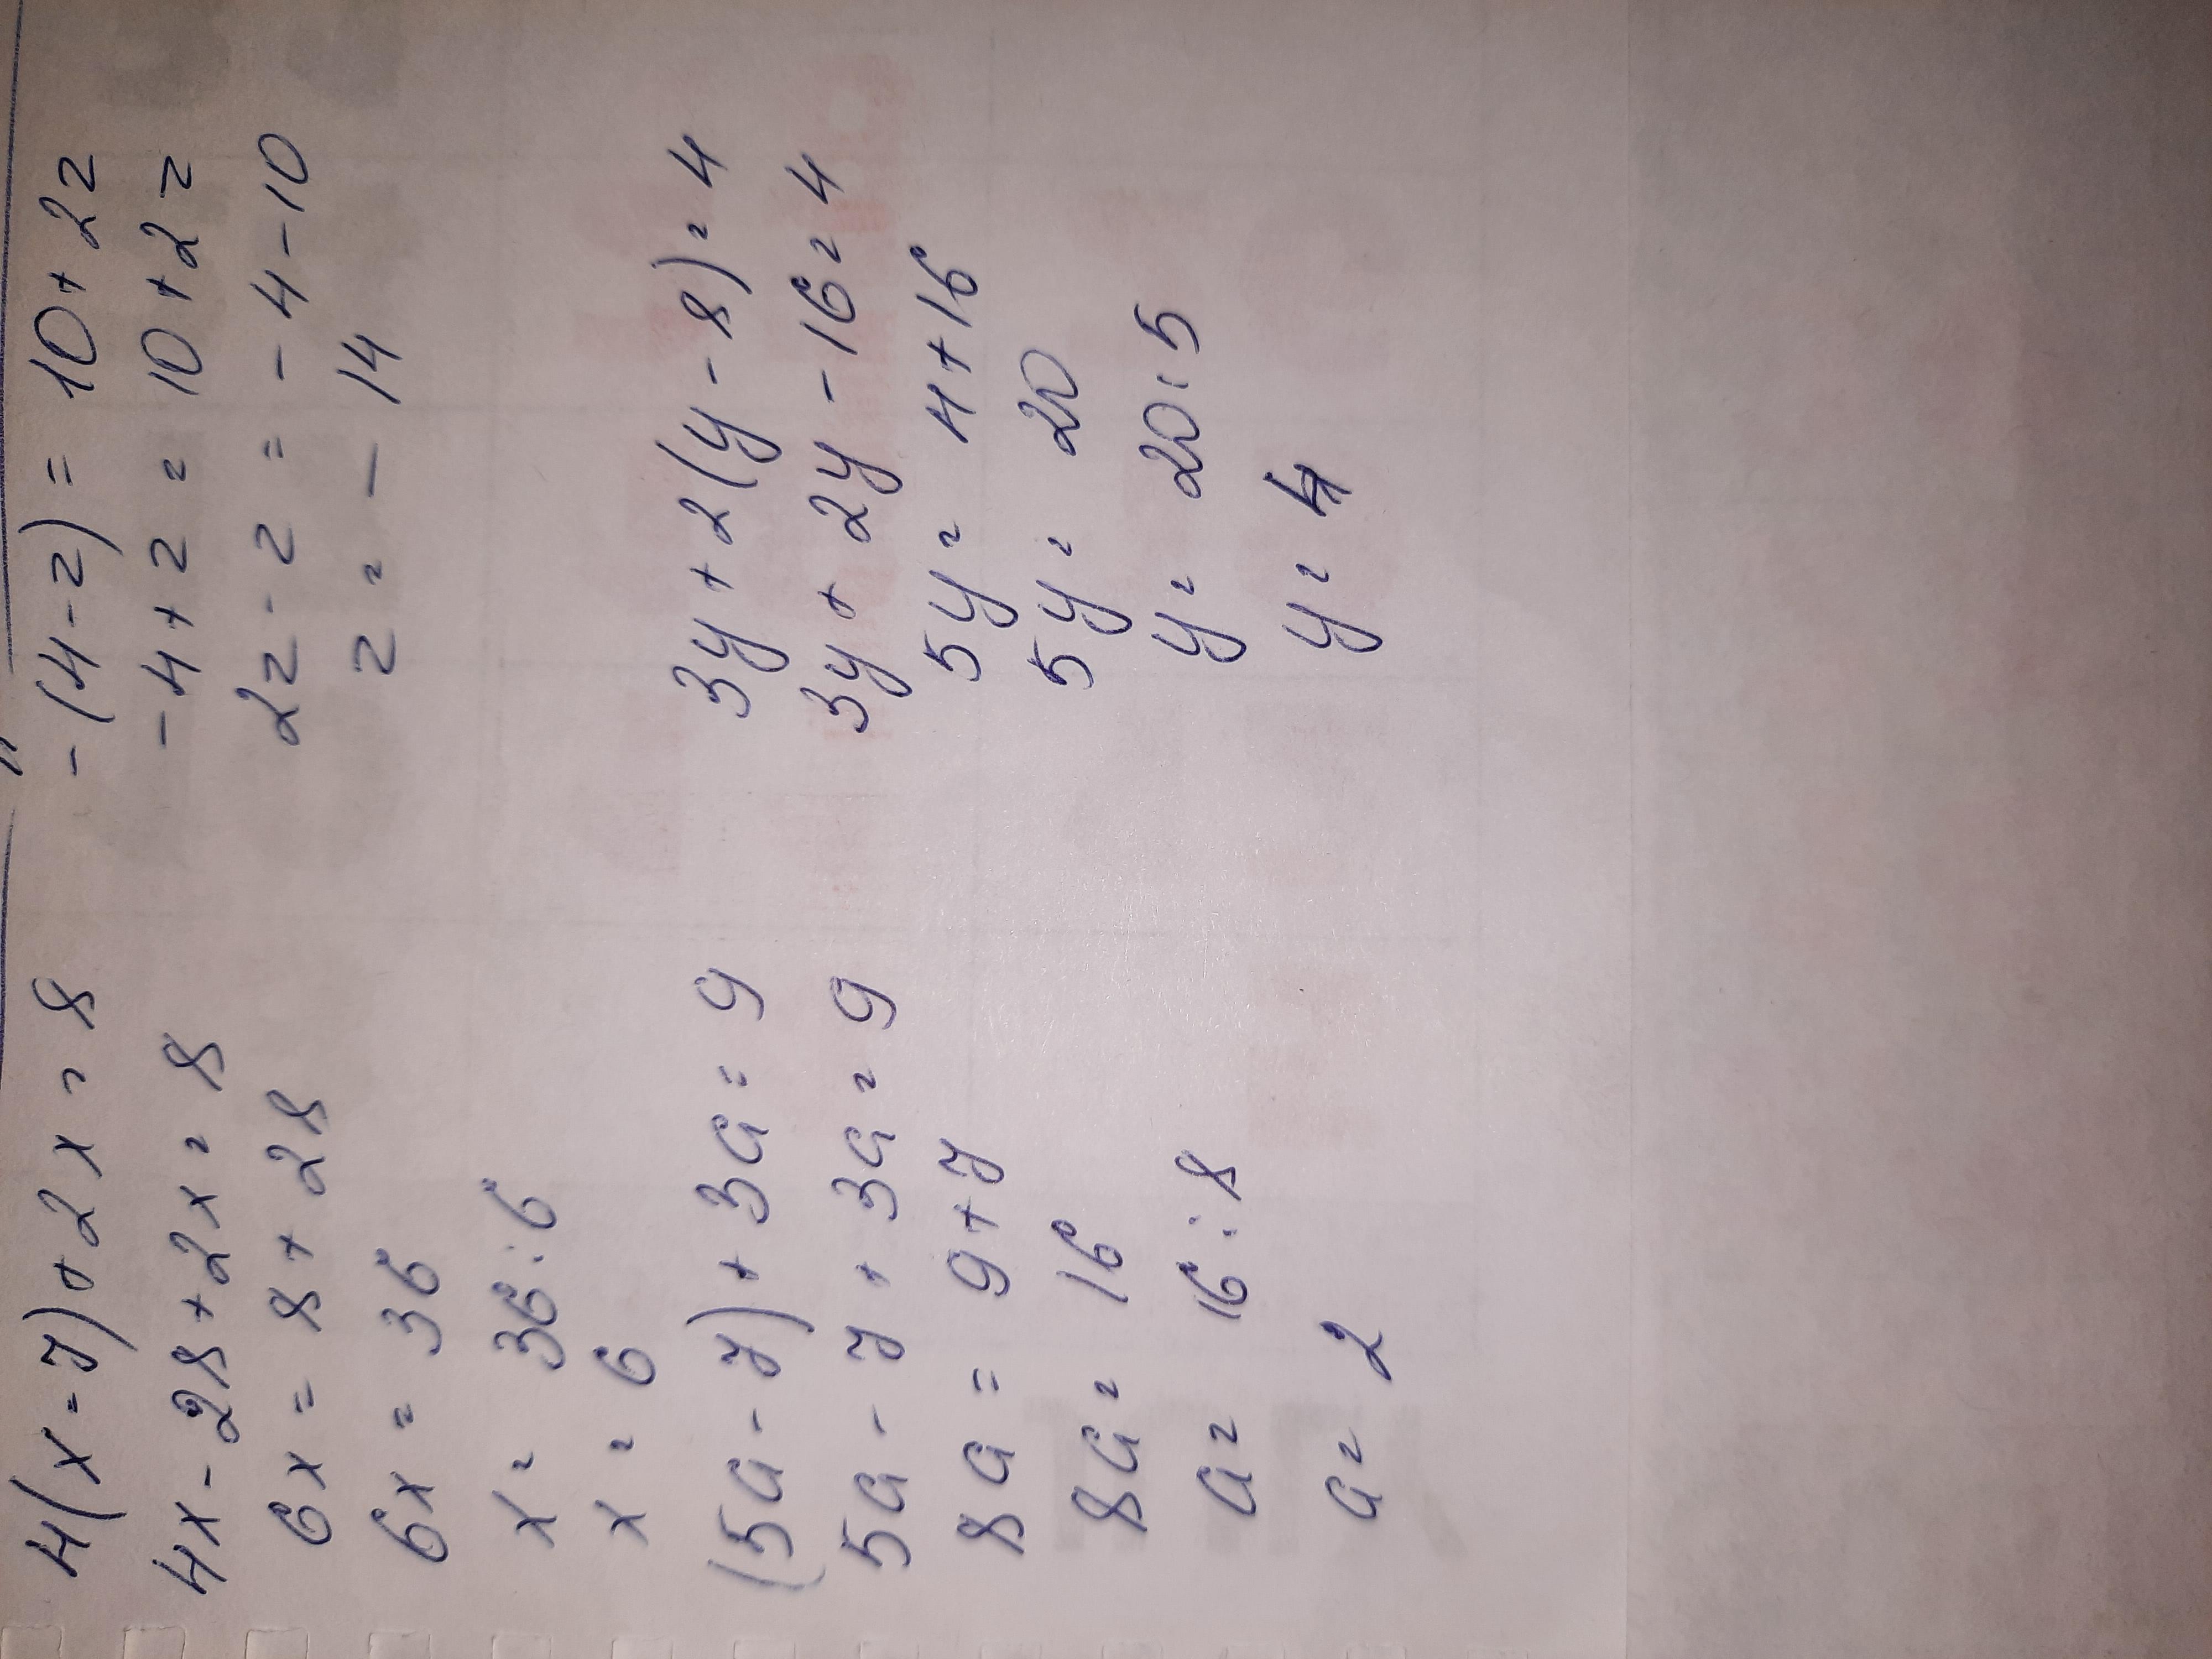 4(x-7)+2x=8
4x-28+2x=8
6x=8+28
6x=36
x=36:6
x=6
-(4-z)=10+2z
-4+z=10+2z
2z-z=-4-10
z=-14
(5a-7)+3a=9
5a-7+3a=9
8a=9+7
8a=16
a=16:8
a=2
3y+2(y-8)=4
3y+2y-16=4
5y=4+16
5y=20
y=20:5
y=4